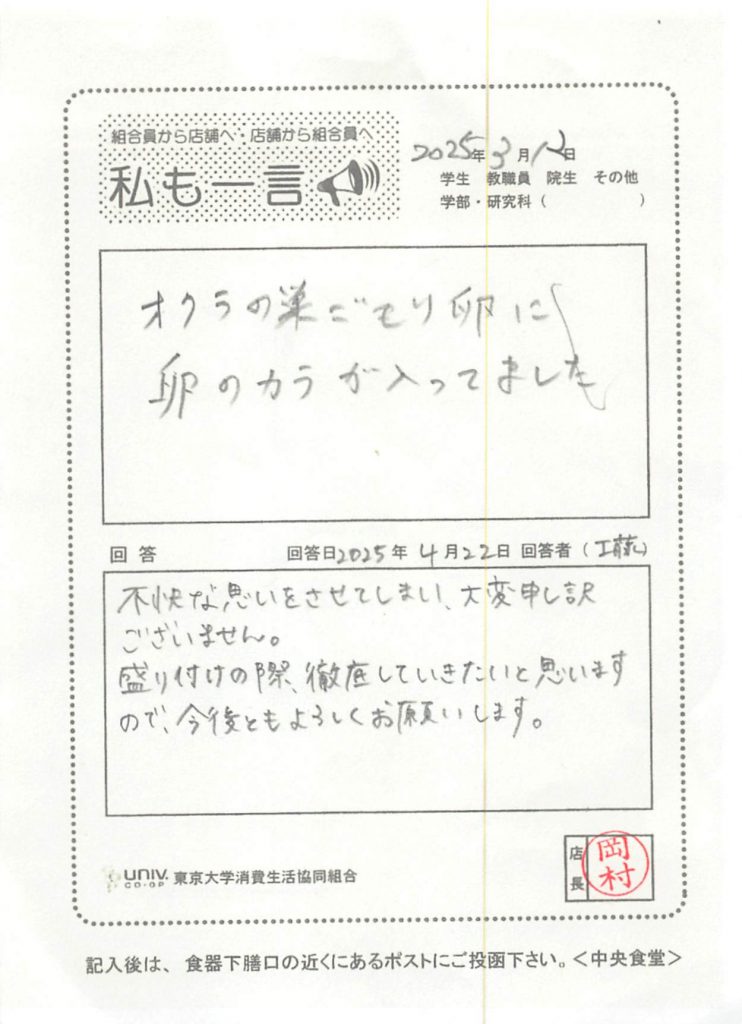 組合員から店舗へ・店舗から組合員へ
私も一言
2025年3月12日
学生 教職員 院生 その他
学部・研究科( )
オクラの巣ごもり卵に
卵のカラが入ってました
回答 回答日2025年4月22日 回答者(工藤)
不快な思いをさせてしまい、大変申し訳
ございません。
盛り付けの際、徹底していきたいと思います
ので、今後ともよろしくお願いします。
UNIV. CO-OP 東京大学消費生活協同組合
店長 岡村
記入後は、食器下膳口の近くにあるポストにご投函下さい。<中央食堂>